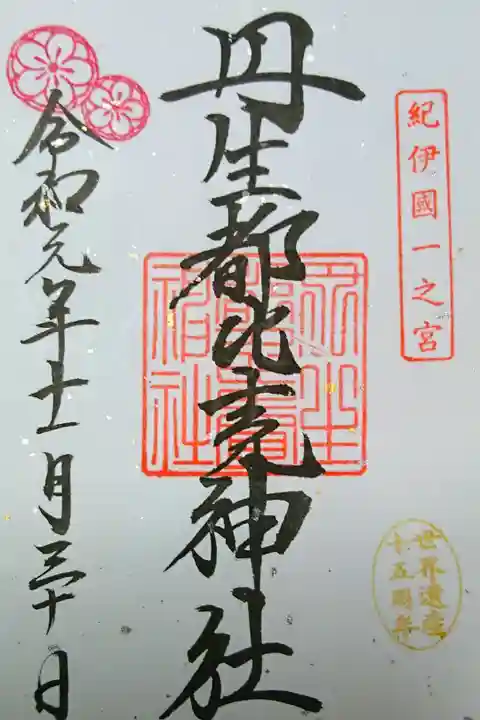 紀伊國一之宮
丹生都比売神社
世界遺産
十五周年
令和元年十一月三十日